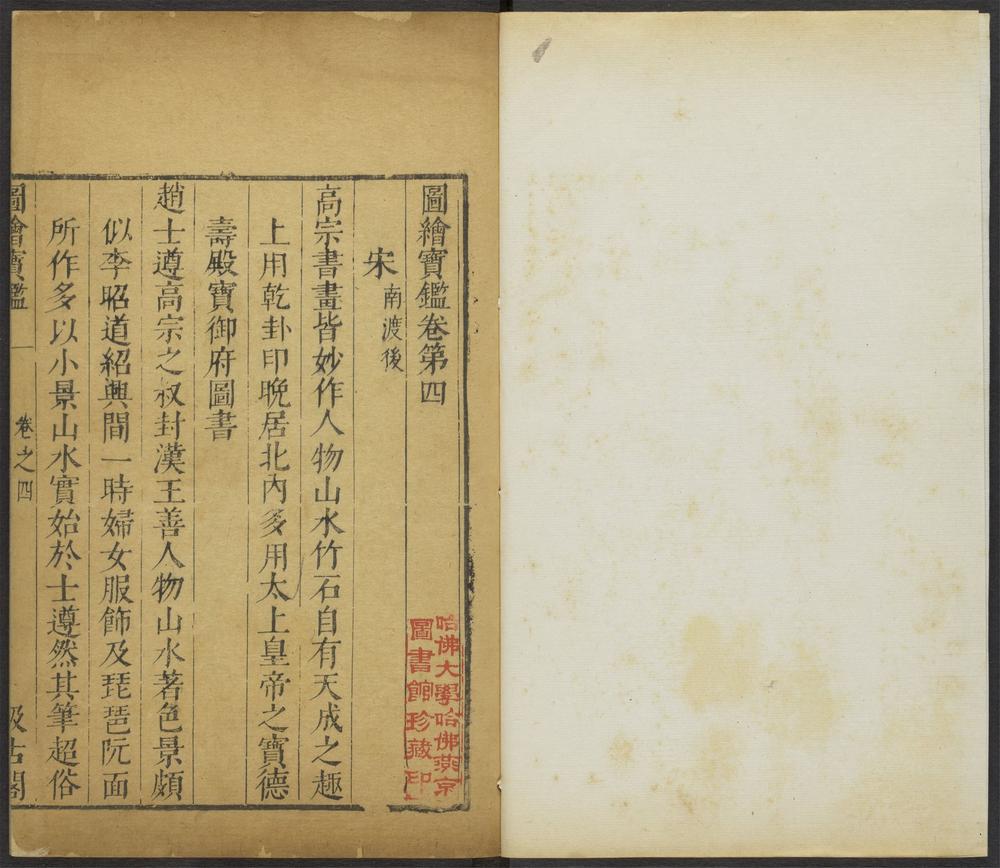 圖繪寶鑑卷第四
宋南渡後
高宗書畫皆妙作人物山水竹石自有天成之趣
上用乾卦印晚居北內多用太上皇帝之寶德
壽殿寶御府圖書
趙士遵高宗之叔封漢王善人物山水著色景頗
似李昭道紹興間一時婦女服飾及琵琶阮面
所作多以小景山水實始於士遵然其筆超俗
圖繪寶鑑 卷之四 汲古閣
哈佛大學哈佛燕京
圖書館珍藏印